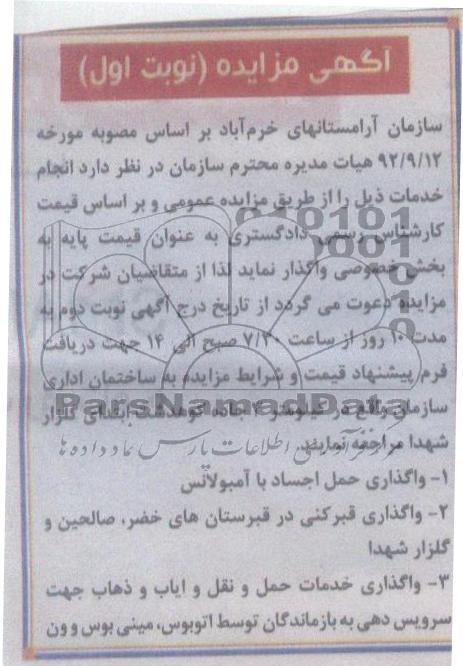 آگهی مزایده (نوبت اول)
سازمان آرامستانهای خرم‌آباد بر اساس مصوبه مورخه
۹۲/۹/۱۲ هیات مدیره محترم سازمان در نظر دارد انجام
خدمات ذیل را از طریق مزایده عمومی و بر اساس قیمت
کارشناس رسمی دادگستری به عنوان قیمت پایه به
بخش خصوصی واگذار نماید لذا از متقاضیان شرکت در
مزایده دعوت می گردد از تاریخ درج آگهی نوبت دوم به
مدت ۱۰ روز از ساعت ۷/۳۰ صبح الی ۱۴ جهت دریافت
فرم پیشنهاد قیمت و شرایط مزایده به ساختمان اداری
سازمان واقع در کیلومتر جاده کوهدشت ابتدای گلزار
ParsNamadData
شهدا مراجعه نمایند.
اطلاعات پارس نماد داده ها
۱- واگذاری حمل اجساد با آمبولانس
۲- واگذاری قبرکنی در قبرستان های خضر، صالحین و
گلزار شهدا
۳- واگذاری خدمات حمل و نقل و ایاب و ذهاب جهت
سرویس دهی به بازماندگان توسط اتوبوس، مینی بوس و ون